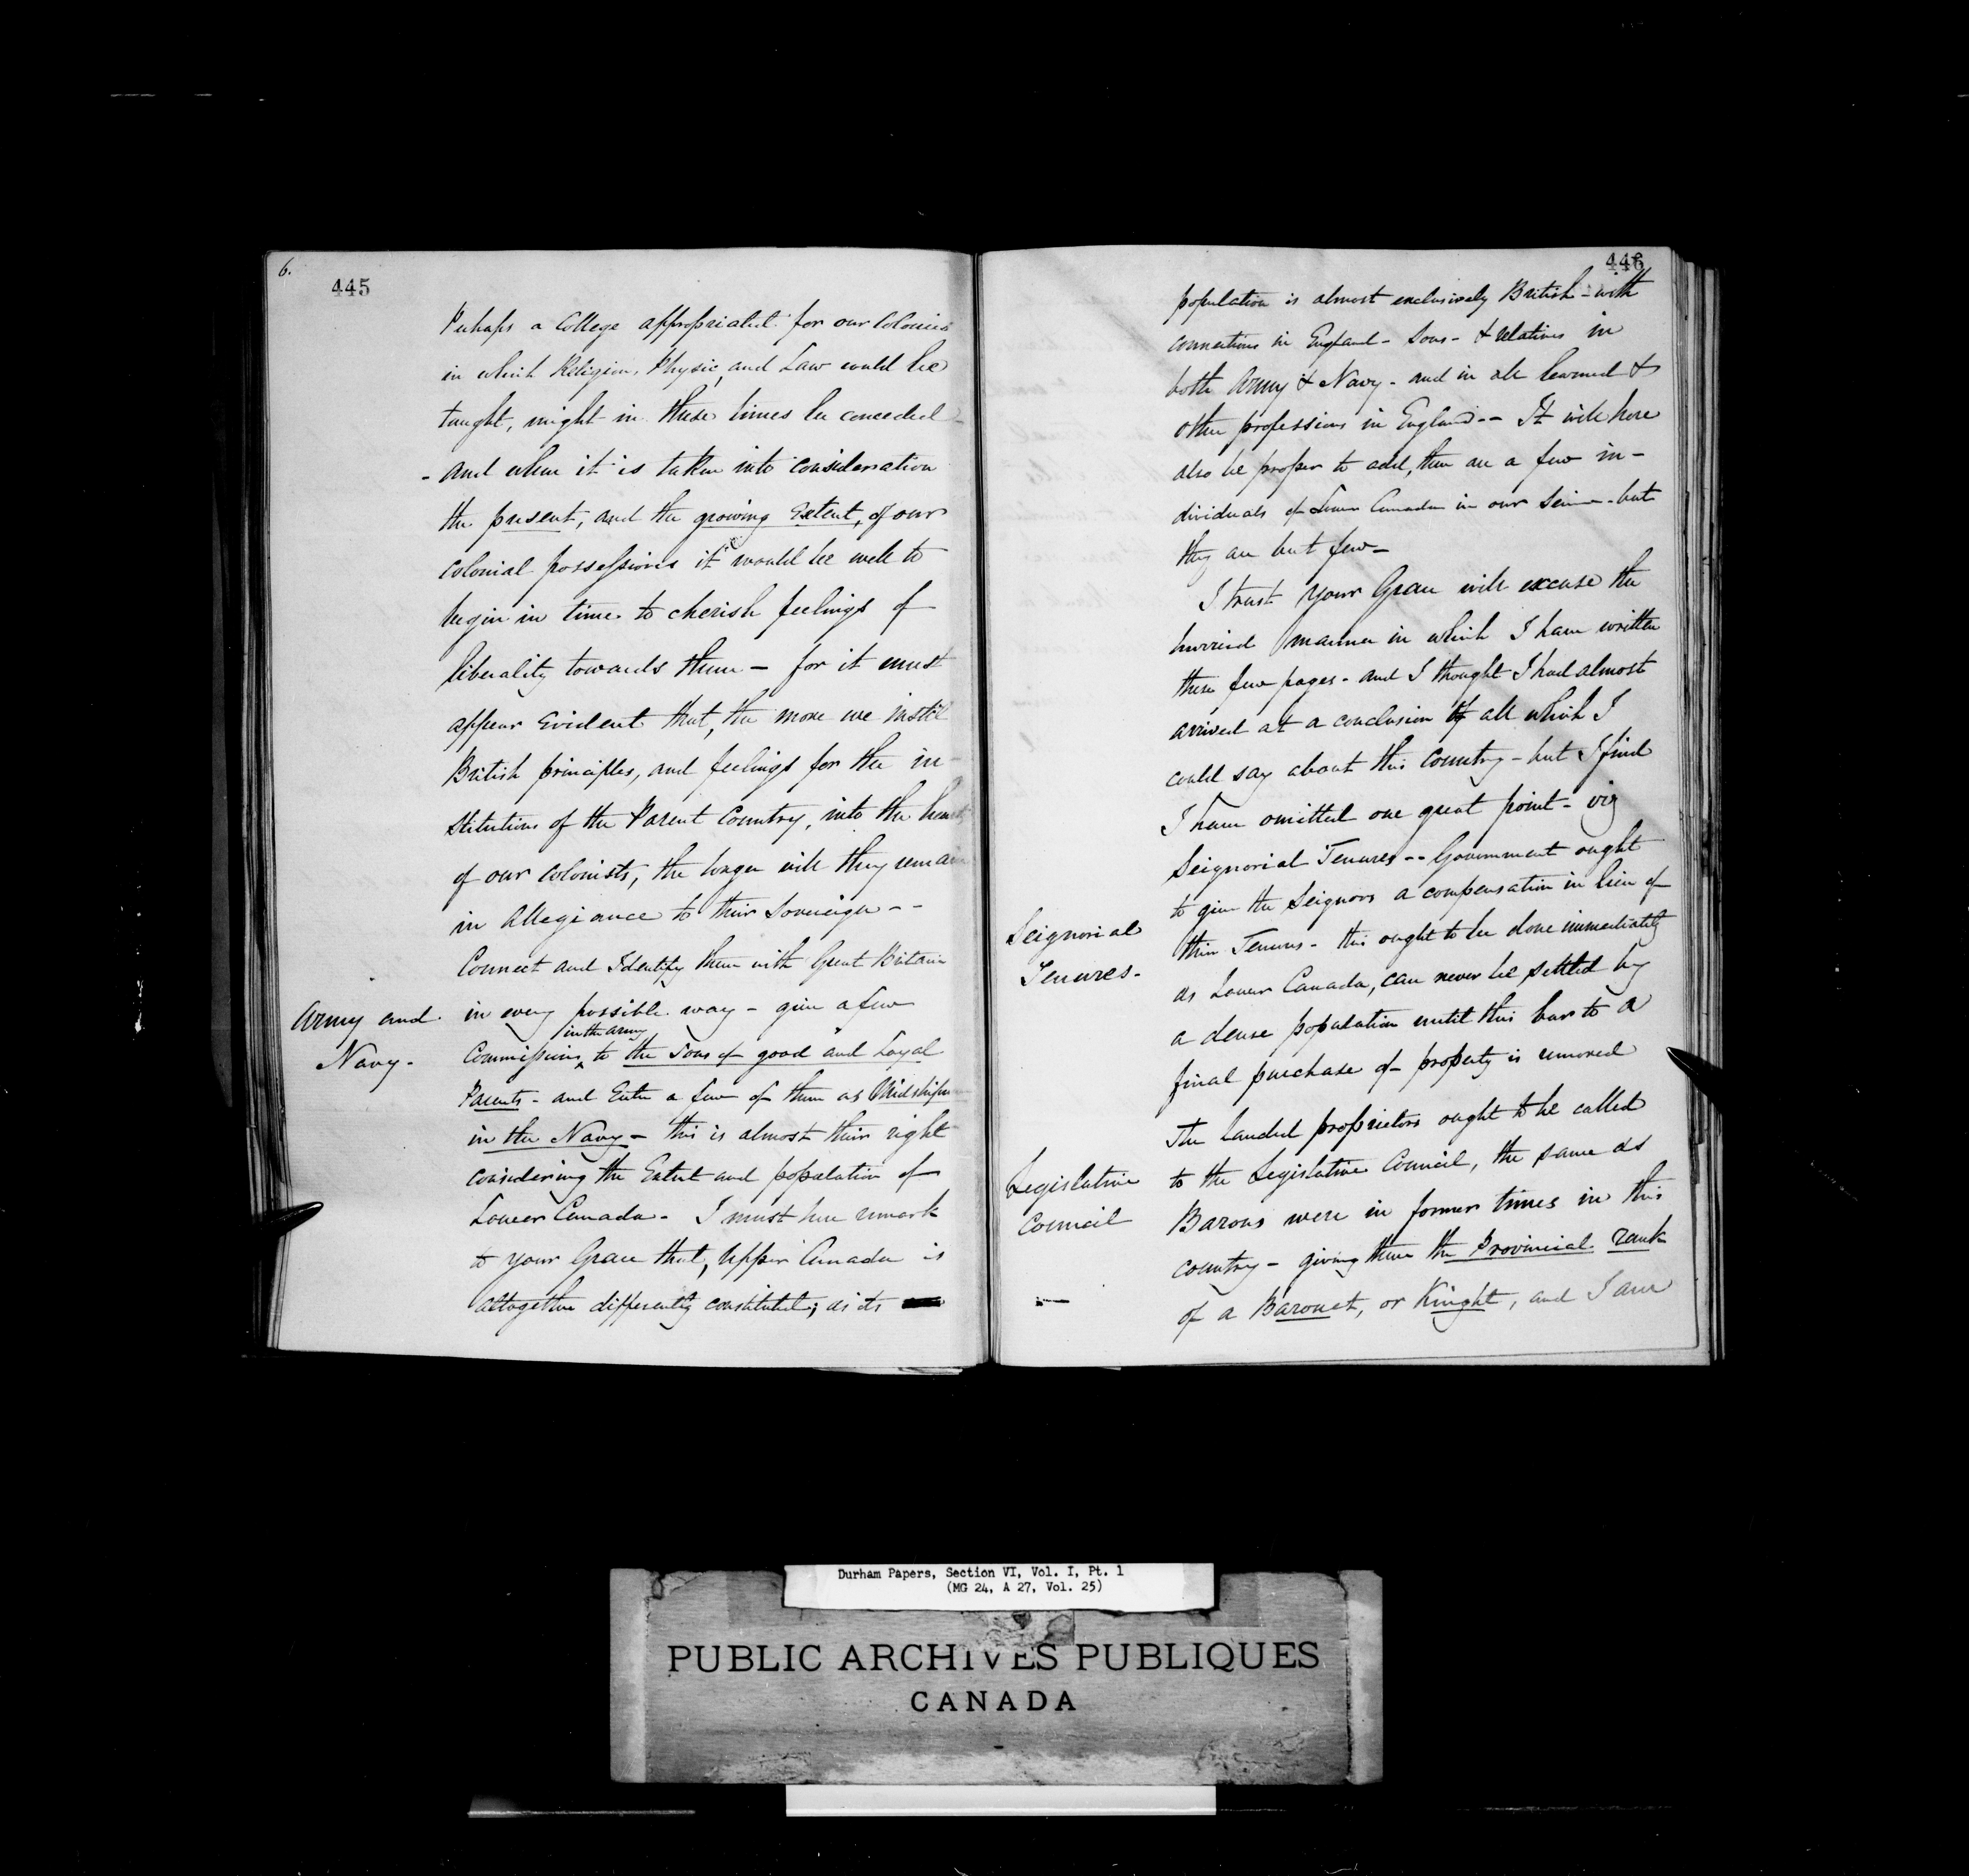 6.
445
Perhaps a College appropriated for our Colonies
in which Religion, Physic, and Law could be
taught, might in these times be conceded -
- and when it is taken into consideration
the present, and the growing Extent, of our
Colonial possessions it would be well to
begin in time to cherish feelings of
liberality towards them - for it must
appear Evident that, the more we instil
British principles, and feelings for the in-
stitutions of the Parent Country, into the hearts
of our Colonists, the longer will they remain
in Allegiance to their Sovereign - -
Connect and Identify them with Great Britain
Army and
Navy -
in every possible way - give a few
in the army
Commissions to the Sons of good and Loyal
Parents - and Enter a few of them as Midshipmen
in the Navy - this is almost their right
considering the Extent and population of
Lower Canada - I must here remark
to your Grace that, Upper Canada is
altogether differently constituted; as its
446
population is almost exclusively British - with
connections in England - Sons - & relatives in
both Army & Navy - and in all learned &
other professions in England - - It will here
also be proper to add, there are a few in-
dividuals of Lower Canada in our Service - but
they are but few -
I trust your Grace will excuse the
hurried manner in which I have written
these few pages - and I thought I had almost
arrived at a conclusion of all which I
could say about this Country - but I find
I have omitted one great point - viz
Seignorial Tenures - - Government ought
to give the Seignors a compensation in lieu of
Seignorial
Tenures -
their Tenures - this ought to be done immediately
as Lower Canada, can never be settled by
a dense population until this bar to a
final purchase of property is removed
The Landed proprietors ought to be called
Legislative
Council
to the Legislative Council, the same as
Barons were in former times in this
country - giving them the Provincial rank
of a Baronet, or Knight, and I am
Durham Papers, Section VI, Vol. I, Pt. 1
(MG 24, A 27, Vol. 25)
PUBLIC ARCHIVES PUBLIQUES
CANADA